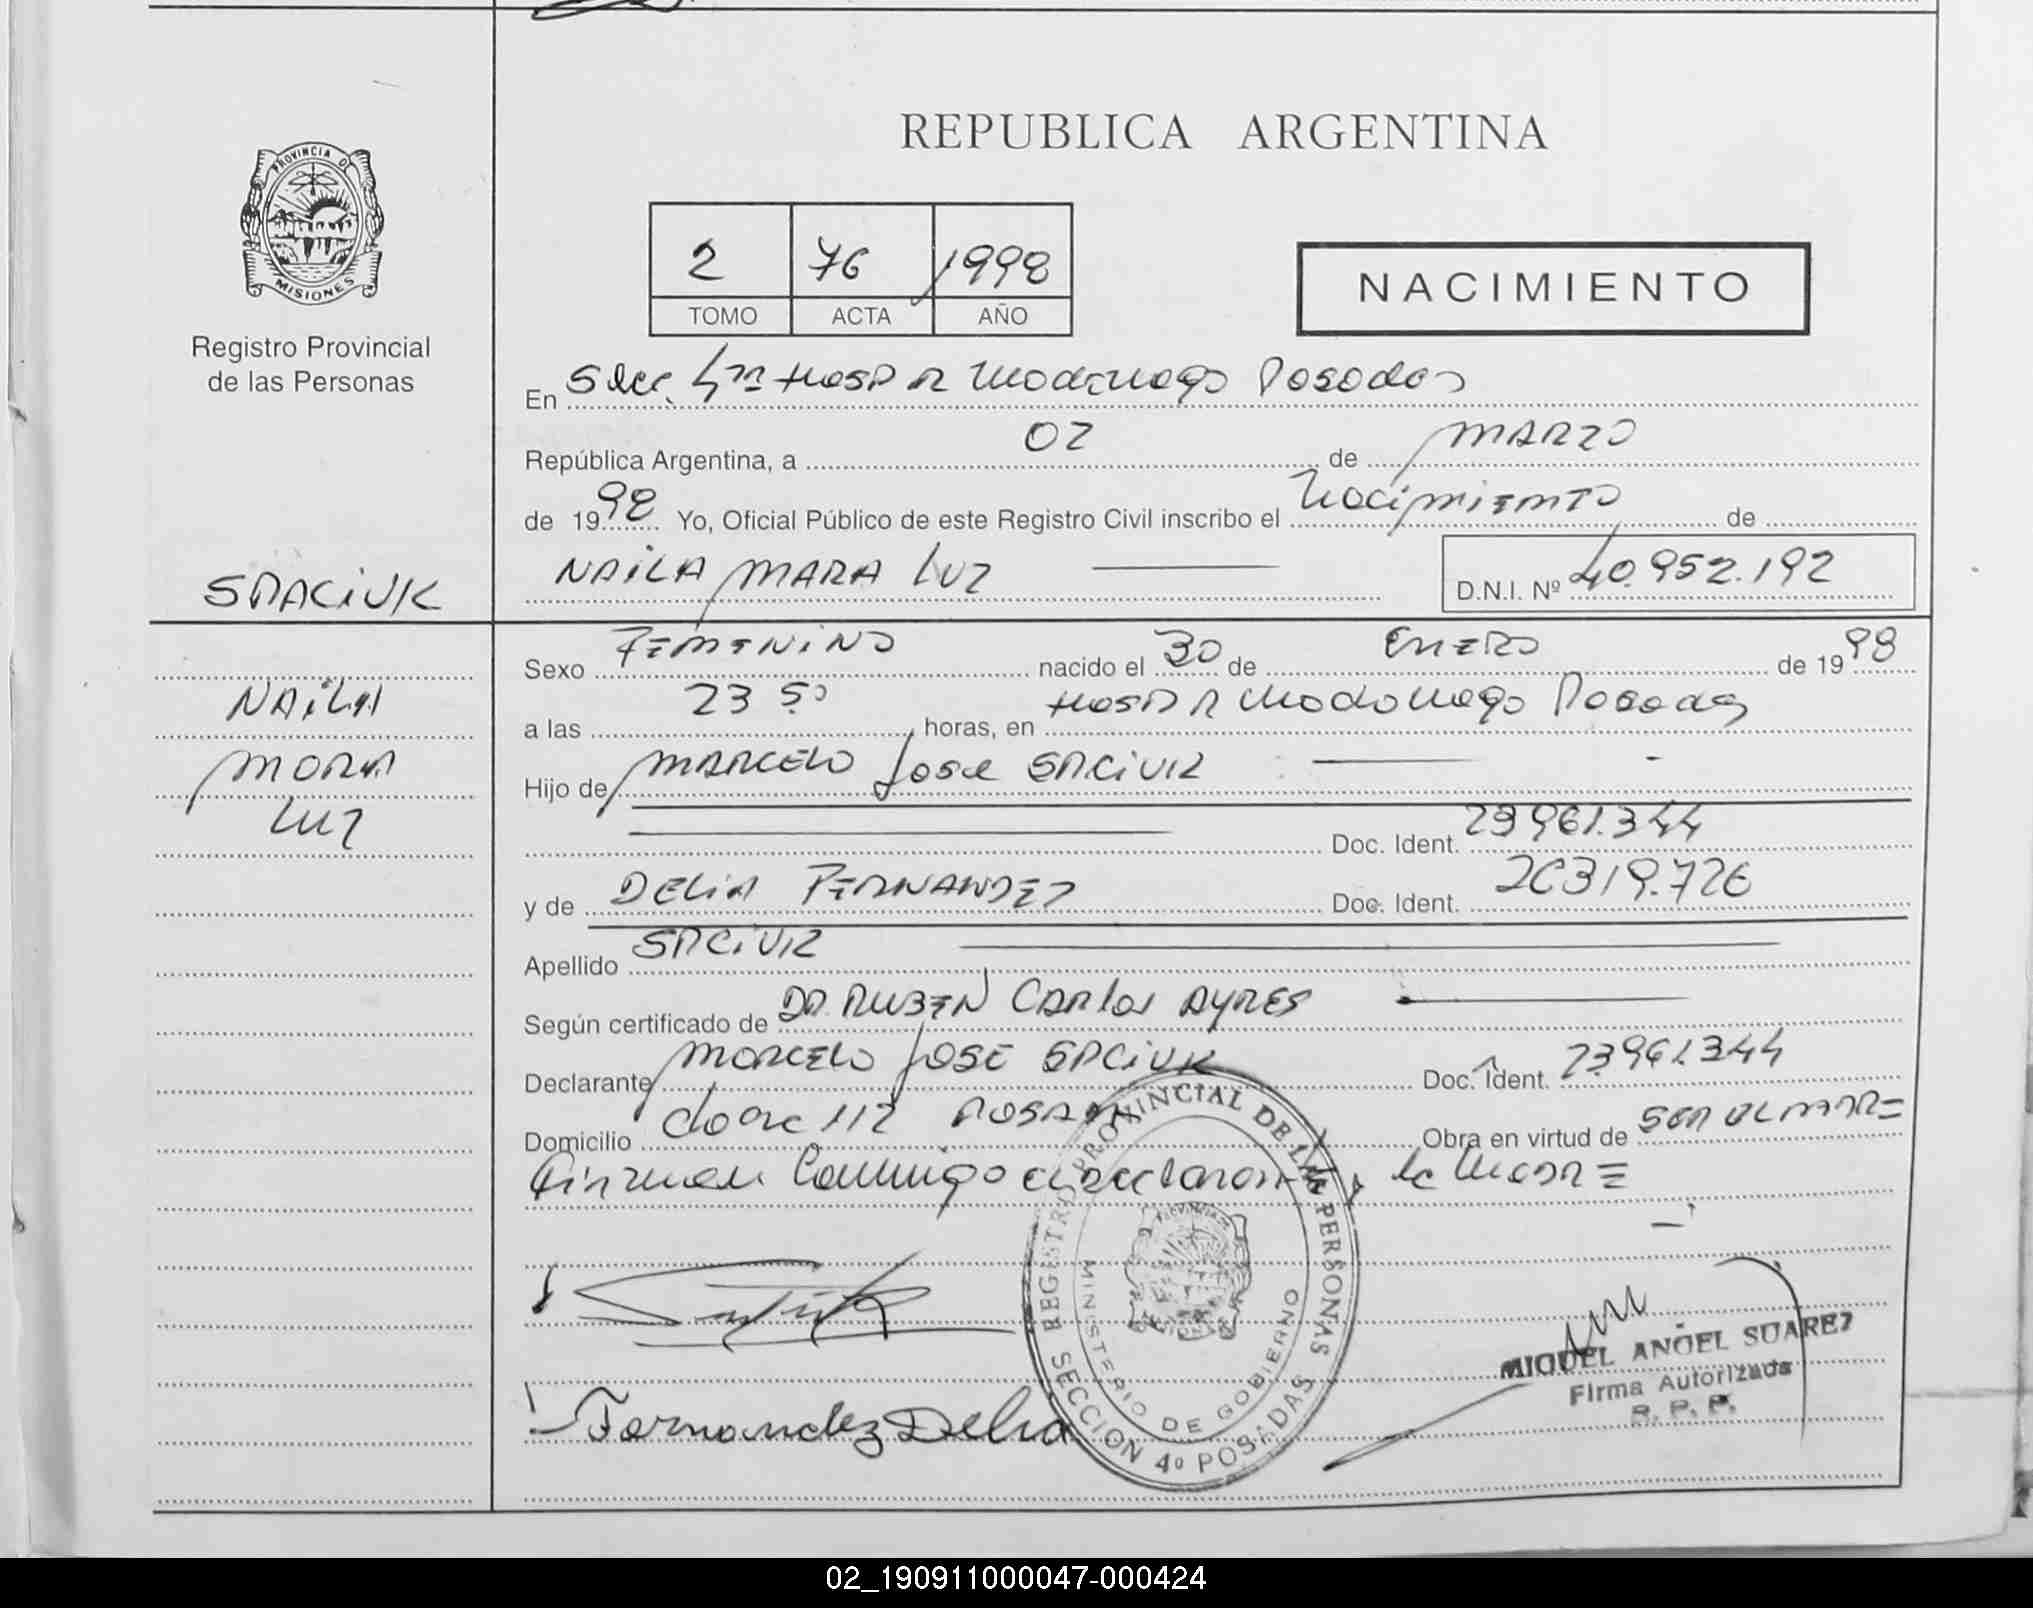 REPUBLICA ARGENTINA
PROVINCIA DE
MISIONES
Registro Provincial
de las Personas
2 76 1998
TOMO ACTA AÑO
NACIMIENTO
En Secc. 4ta Hosp R Madariaga Posadas
República Argentina, a 02 de MARZO
de 1998 Yo, Oficial Público de este Registro Civil inscribo el Nacimiento de
NAILA MARA LUZ
D.N.I. Nº 40.952.192
SPACIUK
NAILA
MARA
LUZ
Sexo FEMENINO nacido el 30 de ENERO de 1998
a las 23 50 horas, en Hosp R Madariaga Posadas
Hijo de MARCELO José SPACIUK
Doc. Ident. 23961.344
y de DELIA FERNANDEZ Doc. Ident. 20319.726
Apellido SPACIUK
Según certificado de DR. RUBEN CARLOS AYRES
Declarante MARCELO JOSE SPACIUK Doc. Ident. 23961.344
Domicilio 112 POSADAS Obra en virtud de SER EL PADRE
Firman Conmigo el declarante y la Madre
Fernandez Delia
REGISTRO PROVINCIAL DE LAS PERSONAS
MINISTERIO DE GOBIERNO
SECCION 4º POSADAS
MIGUEL ANGEL SUAREZ
Firma Autorizada
R. P. P.
02_190911000047-000424